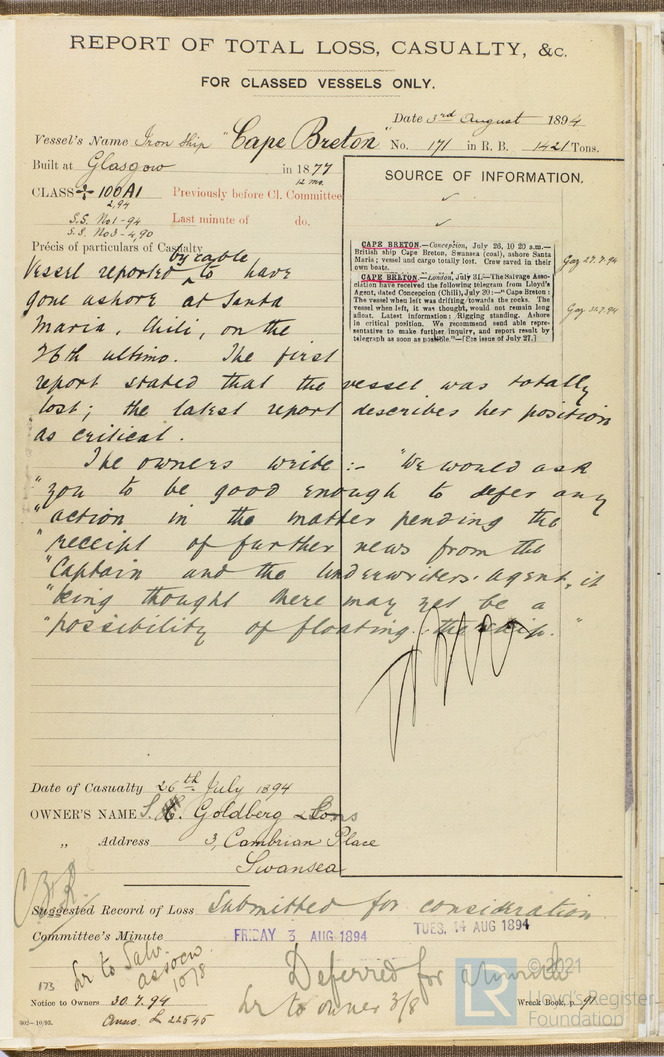 REPORT OF TOTAL LOSS, CASUALTY, &c.
FOR CLASSED VESSELS ONLY.
Date 3rd August 1894
Vessel's Name Iron Ship "Cape Breton" No. 171 in R. B. 1421 Tons.
Built at Glasgow in 1877
12 mo.
CLASS 100A1 Previously before Cl. Committee
2,94
S.S. No1-94 Last minute of do.
S.S. No3-4,90
SOURCE OF INFORMATION.
CAPE BRETON.—Conception, July 26, 10 20 a.m.—
British ship Cape Breton, Swansea (coal), ashore Santa
Maria; vessel and cargo totally lost. Crew saved in their
own boats.
Gaz 27.7.94
CAPE BRETON.—London, July 31.—The Salvage Asso-
ciation have received the following telegram from Lloyd's
Agent, dated Concepcion (Chili), July 30:—"Cape Breton:
The vessel when left was drifting towards the rocks. The
vessel when left, it was thought, would not remain long
afloat. Latest information: Rigging standing. Ashore
in critical position. We recommend send able repre-
sentative to make further inquiry, and report result by
telegraph as soon as possible."—[See issue of July 27.]
Gaz 31.7.94
Précis of particulars of Casualty
by cable
Vessel reported to have
gone ashore at Santa
Maria, Chili, on the
26th ultimo. The first
report stated that the vessel was totally
lost; the latest report describes her position
as critical.
The owners write :- "We would ask
"you to be good enough to defer any
"action in the matter pending the
"receipt of further news from the
"Captain and the Underwriters' agent, it
"being thought there may yet be a
"possibility of floating the ship."
Date of Casualty 26th July 1894
OWNER'S NAME S. Goldberg & Sons
„ Address 3, Cambrian Place
Swansea
Suggested Record of Loss Submitted for consideration
Committee's Minute FRIDAY 3 AUG 1894 TUES. 14 AUG 1894
Lr to Salv.
Assocn.
10/8
Deferred for
Lr to owner 3/8
173
Notice to Owners 30.7.94
Wreck Book, p. 91
302-10/93.
© 2021
LR
Lloyd's Register
Foundation